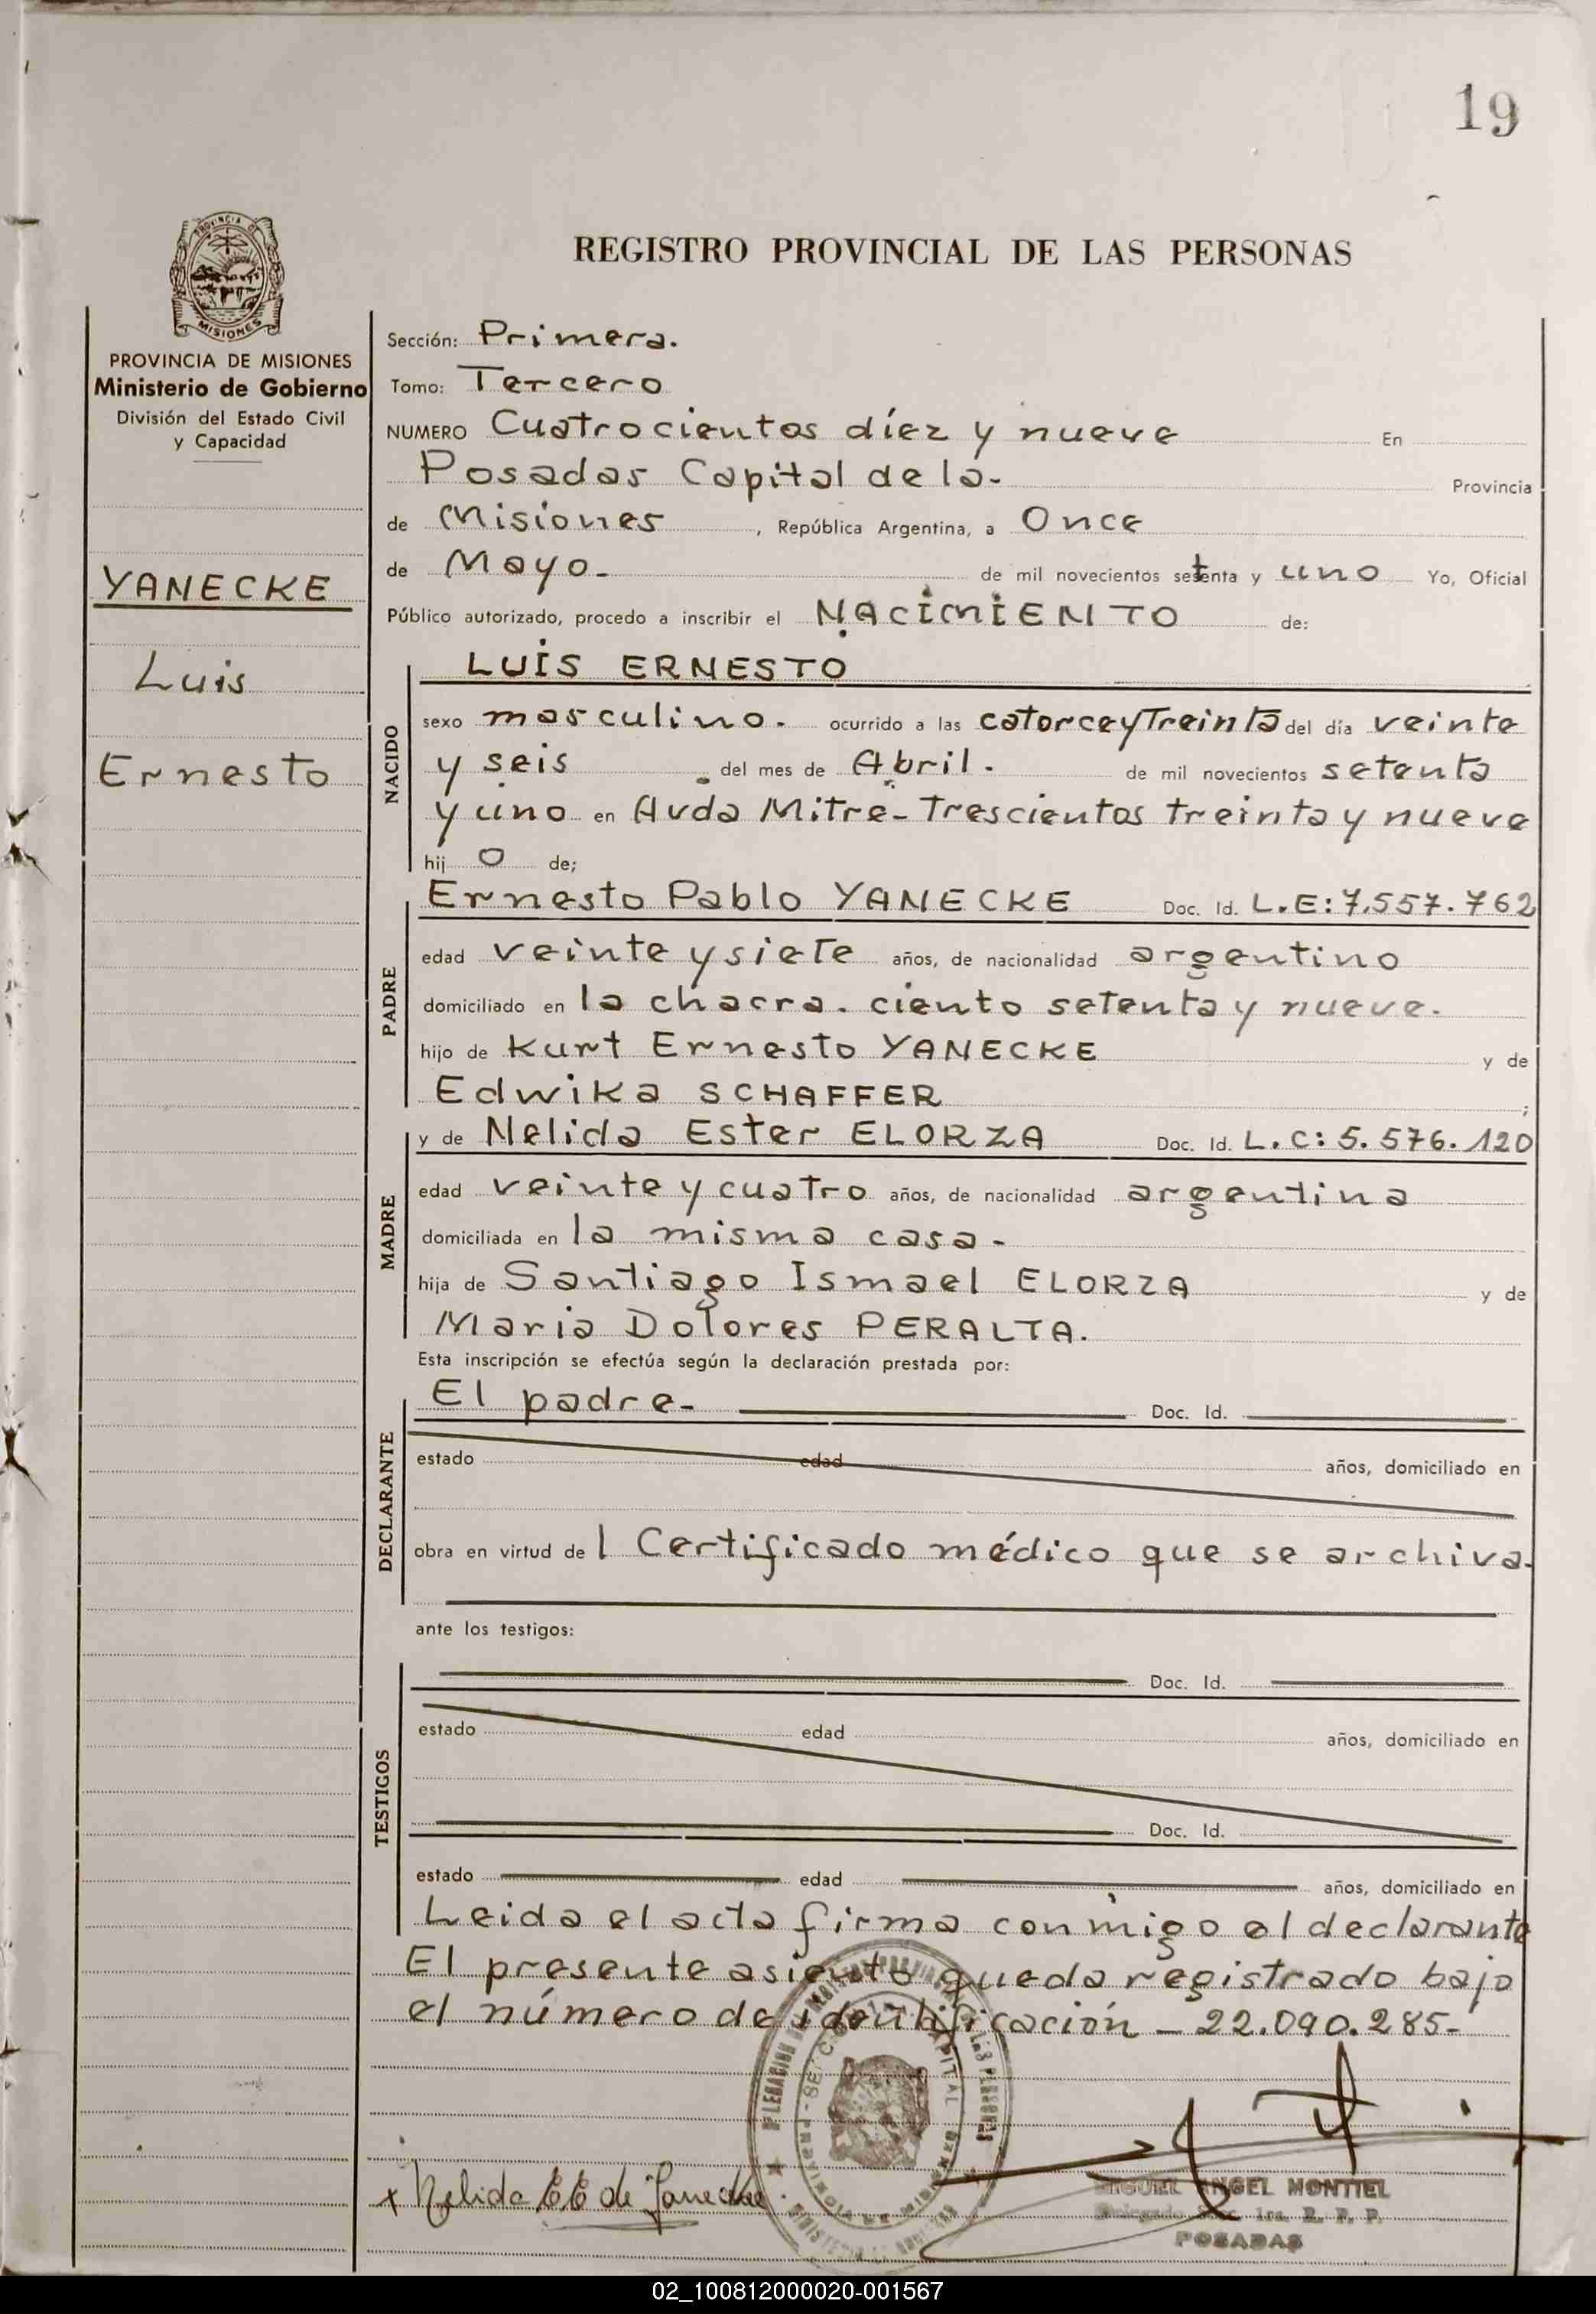 19
REGISTRO PROVINCIAL DE LAS PERSONAS
PROVINCIA DE
MISIONES
PROVINCIA DE MISIONES
Ministerio de Gobierno
División del Estado Civil
y Capacidad
YANECKE
Luis
Ernesto
Sección: Primera.
Tomo: Tercero
NUMERO Cuatrocientos díez y nueve En
Posadas Capital de la- Provincia
de Misiones, República Argentina, a Once
de Mayo- de mil novecientos setenta y uno Yo, Oficial
Público autorizado, procedo a inscribir el NACIMIENTO de:
NACIDO
LUIS ERNESTO
sexo masculino. ocurrido a las catorce y Treinta del día veinte
y seis del mes de Abril. de mil novecientos setenta
y uno en Avda Mitre- Trescientos treinta y nueve
hij o de;
PADRE
Ernesto Pablo YANECKE Doc. Id. L.E: 7.557.762
edad veinte y siete años, de nacionalidad argentino
domiciliado en la chacra. ciento setenta y nueve.
hijo de Kurt Ernesto YANECKE y de
Edwika SCHAFFER ;
MADRE
y de Nelida Ester ELORZA Doc. Id. L.C: 5.576.120
edad veinte y cuatro años, de nacionalidad argentina
domiciliada en la misma casa-
hija de Santiago Ismael ELORZA y de
Maria Dolores PERALTA.
Esta inscripción se efectúa según la declaración prestada por:
DECLARANTE
El padre- Doc. Id.
estado edad años, domiciliado en
obra en virtud de l Certificado médico que se archiva.
ante los testigos:
TESTIGOS
Doc. Id.
estado edad años, domiciliado en
Doc. Id.
estado edad años, domiciliado en
Leida el acta firma conmigo el declarante
El presente asiento queda registrado bajo
el número de identificación - 22.090.285-
x Nelida E E de Yanecke.
MIGUEL ANGEL MONTIEL
Delegado Sec. 1ra. R. P. P.
POSADAS
02_100812000020-001567